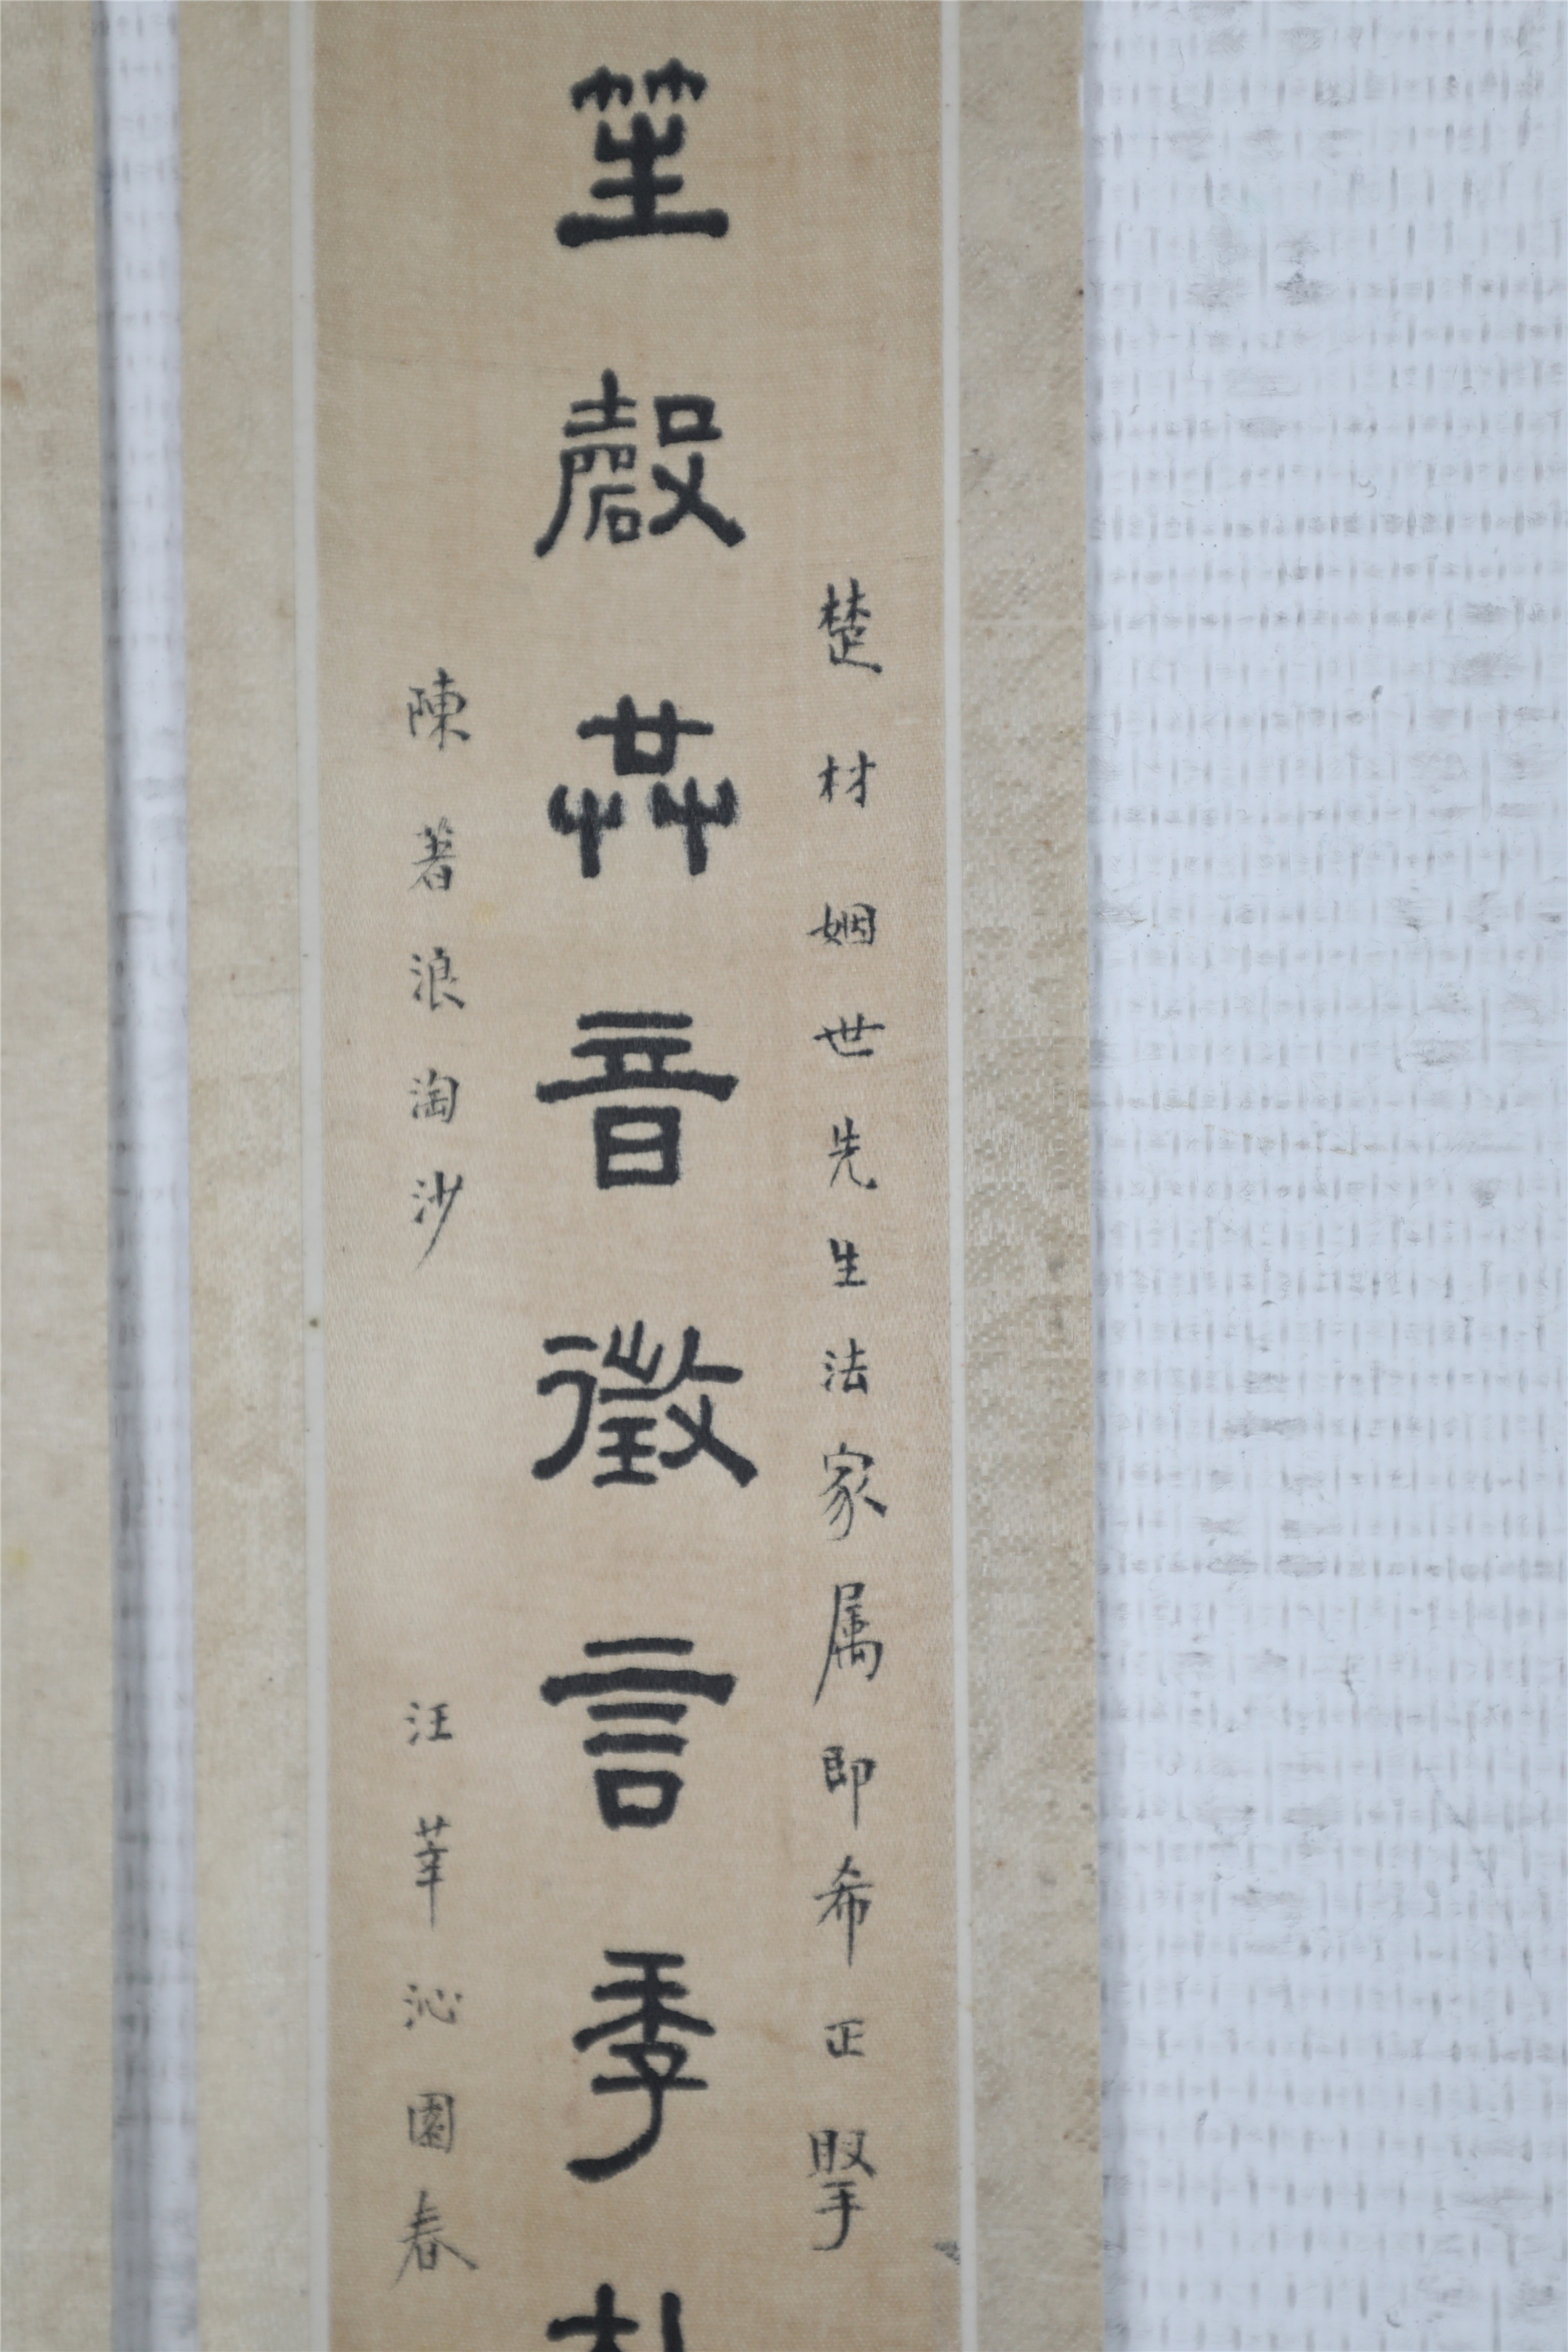 楚材姻世先生法家属即希正掔
笙磬共音徵言季
陳著浪淘沙 汪莘沁園春